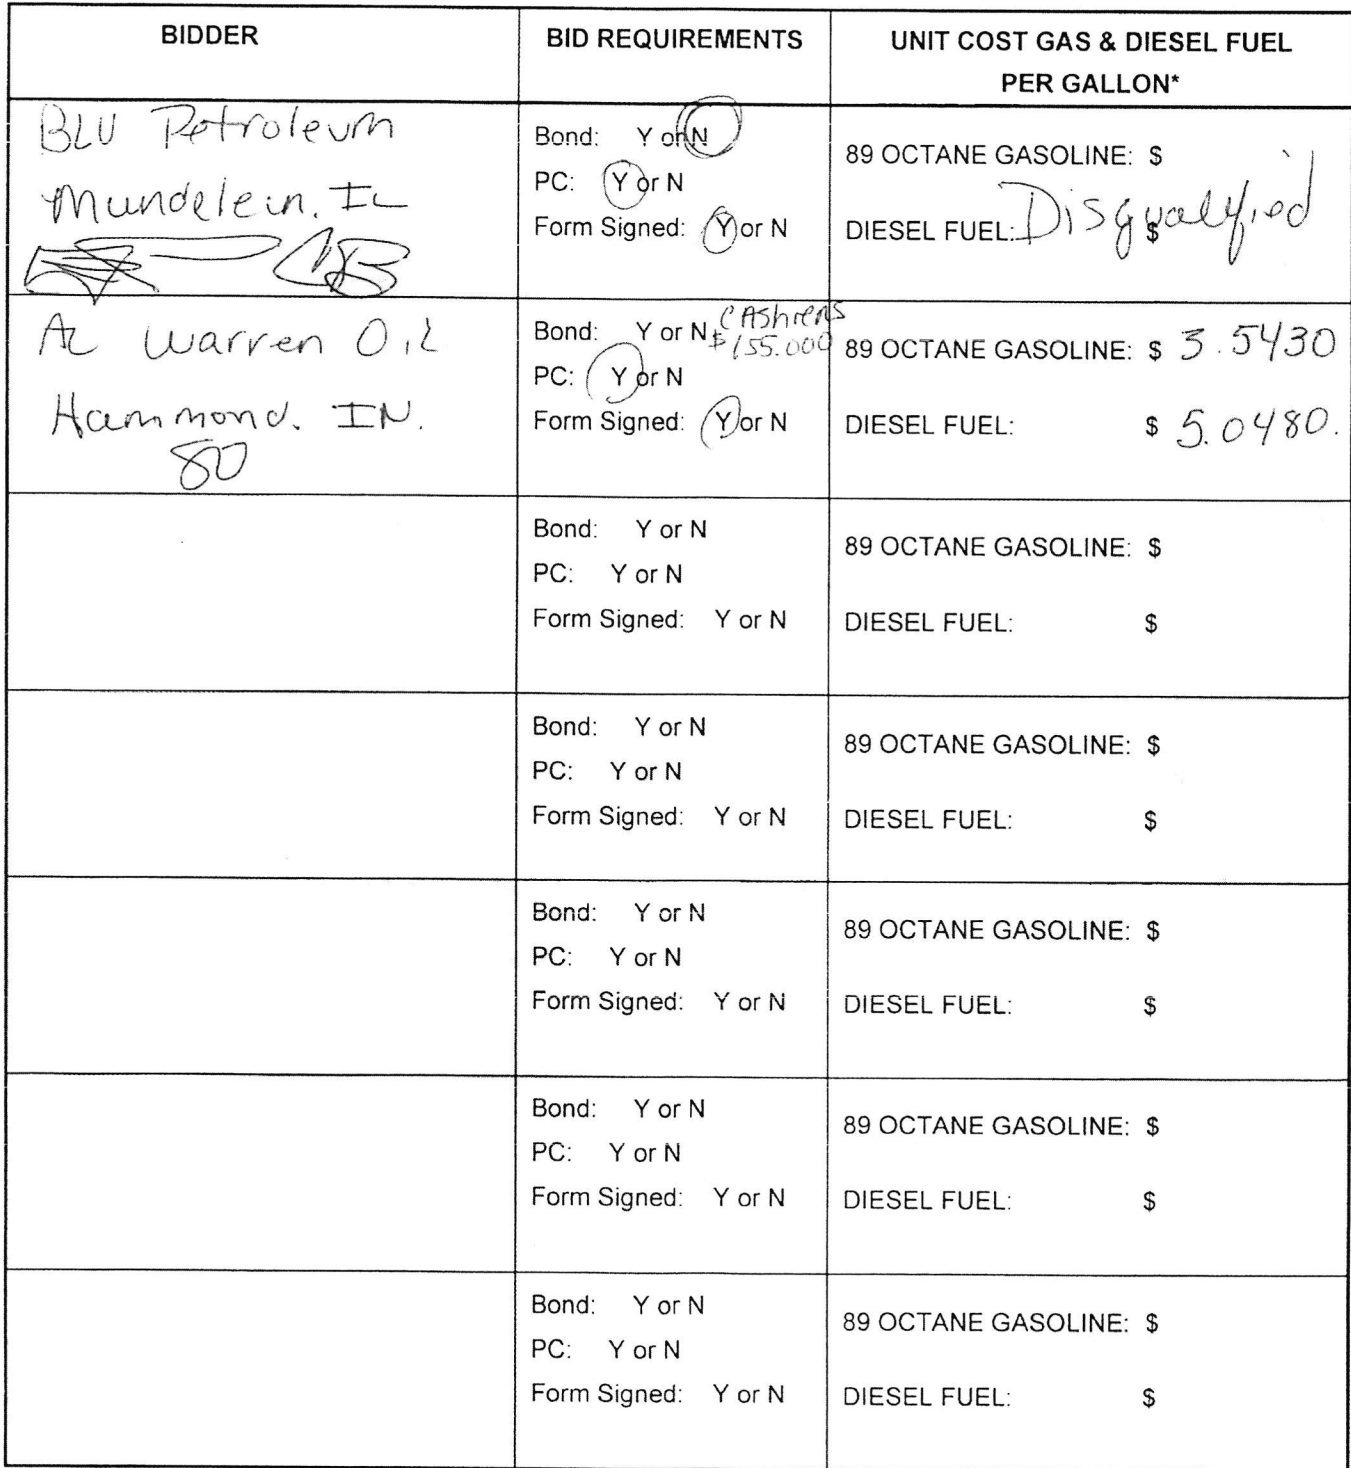 BIDDER
BID REQUIREMENTS
UNIT COST GAS & DIESEL FUEL
PER GALLON*
BLU Petroleum
Mundelein, IL
Bond: Y or N
PC: Y or N
Form Signed: Y or N
89 OCTANE GASOLINE: $
DIESEL FUEL: $
Disqualified
AL Warren Oil
Hammond. IN.
Bond: Y or N
CAShiers
$155.000
PC: Y or N
Form Signed: Y or N
89 OCTANE GASOLINE: $ 3.5430
DIESEL FUEL: $ 5.0480.
Bond: Y or N
PC: Y or N
Form Signed: Y or N
89 OCTANE GASOLINE: $
DIESEL FUEL: $
Bond: Y or N
PC: Y or N
Form Signed: Y or N
89 OCTANE GASOLINE: $
DIESEL FUEL: $
Bond: Y or N
PC: Y or N
Form Signed: Y or N
89 OCTANE GASOLINE: $
DIESEL FUEL: $
Bond: Y or N
PC: Y or N
Form Signed: Y or N
89 OCTANE GASOLINE: $
DIESEL FUEL: $
Bond: Y or N
PC: Y or N
Form Signed: Y or N
89 OCTANE GASOLINE: $
DIESEL FUEL: $